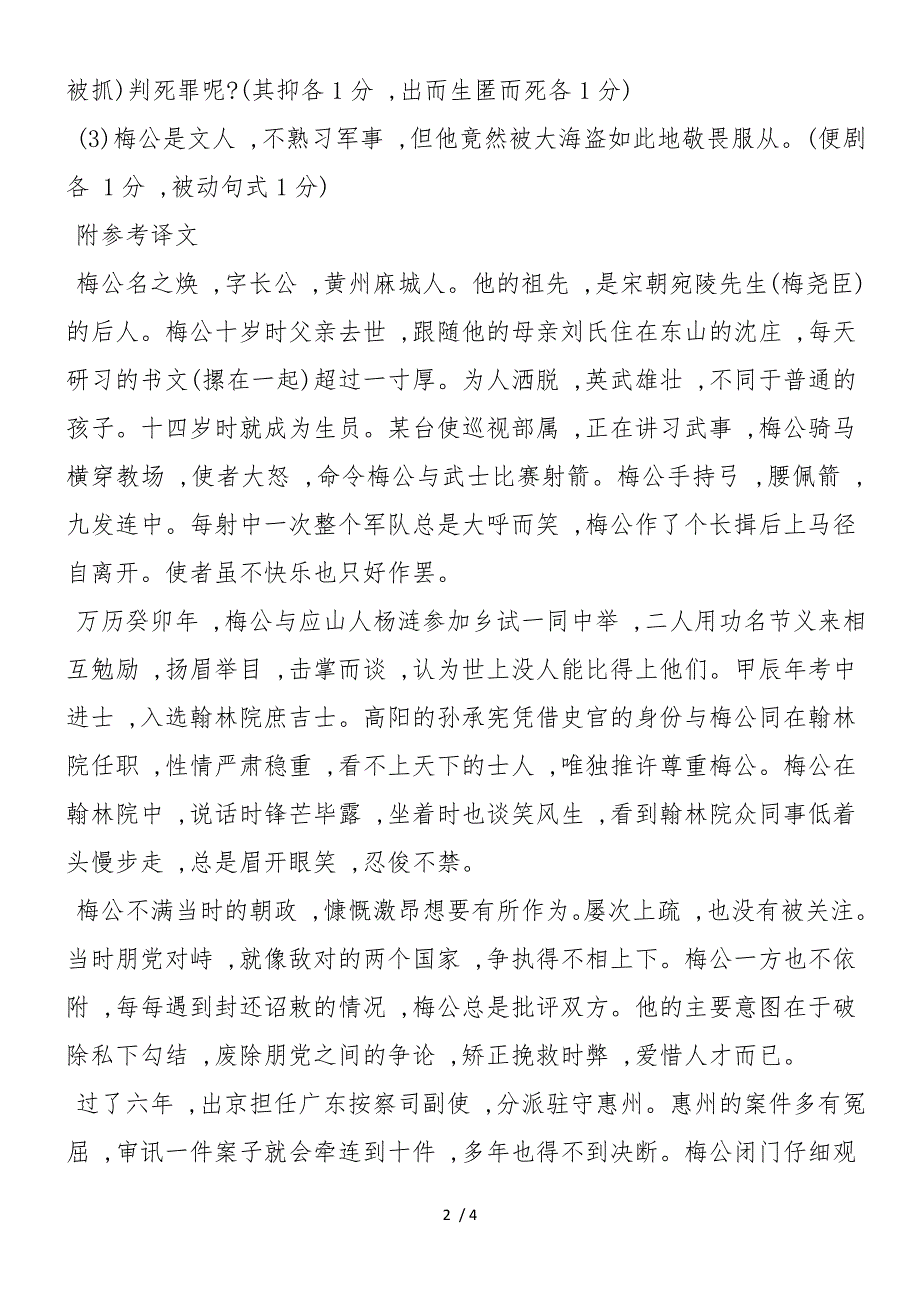 被抓)判死罪呢?(其抑各1分 ,出而生匿而死各1分)
(3)梅公是文人 ,不熟习军事 ,但他竟然被大海盗如此地敬畏服从。(便剧
各 1分 ,被动句式1分)
附参考译文
梅公名之焕 ,字长公 ,黄州麻城人。他的祖先 ,是宋朝宛陵先生(梅尧臣)
的后人。梅公十岁时父亲去世 ,跟随他的母亲刘氏住在东山的沈庄 ,每天
研习的书文(摞在一起)超过一寸厚。为人洒脱 ,英武雄壮 ,不同于普通的
孩子。十四岁时就成为生员。某台使巡视部属 ,正在讲习武事 ,梅公骑马
横穿教场 ,使者大怒 ,命令梅公与武士比赛射箭。梅公手持弓 ,腰佩箭 ,
九发连中。每射中一次整个军队总是大呼而笑 ,梅公作了个长揖后上马径
自离开。使者虽不快乐也只好作罢。
万历癸卯年 ,梅公与应山人杨涟参加乡试一同中举 ,二人用功名节义来相
互勉励 ,扬眉举目 ,击掌而谈 ,认为世上没人能比得上他们。甲辰年考中
进士 ,入选翰林院庶吉士。高阳的孙承宪凭借史官的身份与梅公同在翰林
院任职 ,性情严肃稳重 ,看不上天下的士人 ,唯独推许尊重梅公。梅公在
翰林院中 ,说话时锋芒毕露 ,坐着时也谈笑风生 ,看到翰林院众同事低着
头慢步走 ,总是眉开眼笑 ,忍俊不禁。
梅公不满当时的朝政 ,慷慨激昂想要有所作为。屡次上疏 ,也没有被关注。
当时朋党对峙 ,就像敌对的两个国家 ,争执得不相上下。梅公一方也不依
附 ,每每遇到封还诏敕的情况 ,梅公总是批评双方。他的主要意图在于破
除私下勾结 ,废除朋党之间的争论 ,矫正挽救时弊 ,爱惜人才而已。
过了六年 ,出京担任广东按察司副使 ,分派驻守惠州。惠州的案件多有冤
屈 ,审讯一件案子就会牵连到十件 ,多年也得不到决断。梅公闭门仔细观
2 / 4